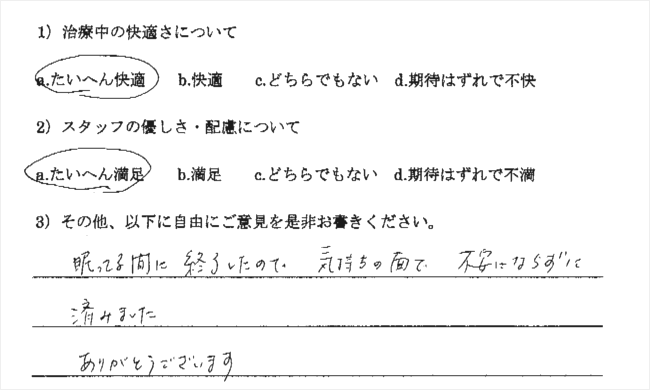 1）治療中の快適さについて
a.たいへん快適　b.快適　c.どちらでもない　d.期待はずれで不快
2）スタッフの優しさ・配慮について
a.たいへん満足　b.満足　c.どちらでもない　d.期待はずれで不満
3）その他、以下に自由にご意見を是非お書きください。
眠ってる間に終了したので 気持ちの面で 不安にならずに
済みました
ありがとうございます